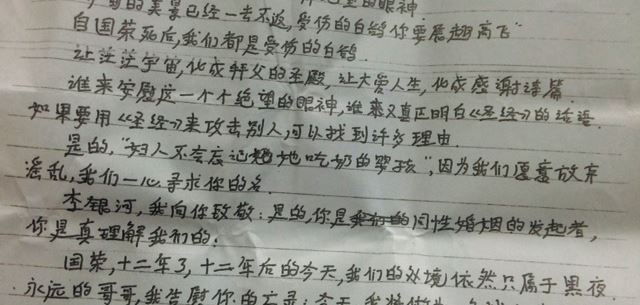 的美景已经一去不返,受伤的白鸽你要展翅高飞"
自国荣死后,我们都是受伤的白鸽.
让茫茫宇宙,化成拜父的圣殿,让大爱人生,化成感谢诗篇.
谁来安慰这一个个绝望的眼神,谁来又真正明白《圣经》的话语.
如果要用《圣经》来攻击别人,可以找到许多理由.
是的,"妇人不会忘记她吃奶的婴孩",因为我们愿意放弃
淫乱,我们一心寻求你的名.
李银河,我向你致敬:是的,你是同性婚姻的发起者,
你是真理解我们的!
国荣,十二年了,十二年后的今天,我们的处境依然只属于黑夜.
永远的哥哥,我告慰你的亡灵:今天